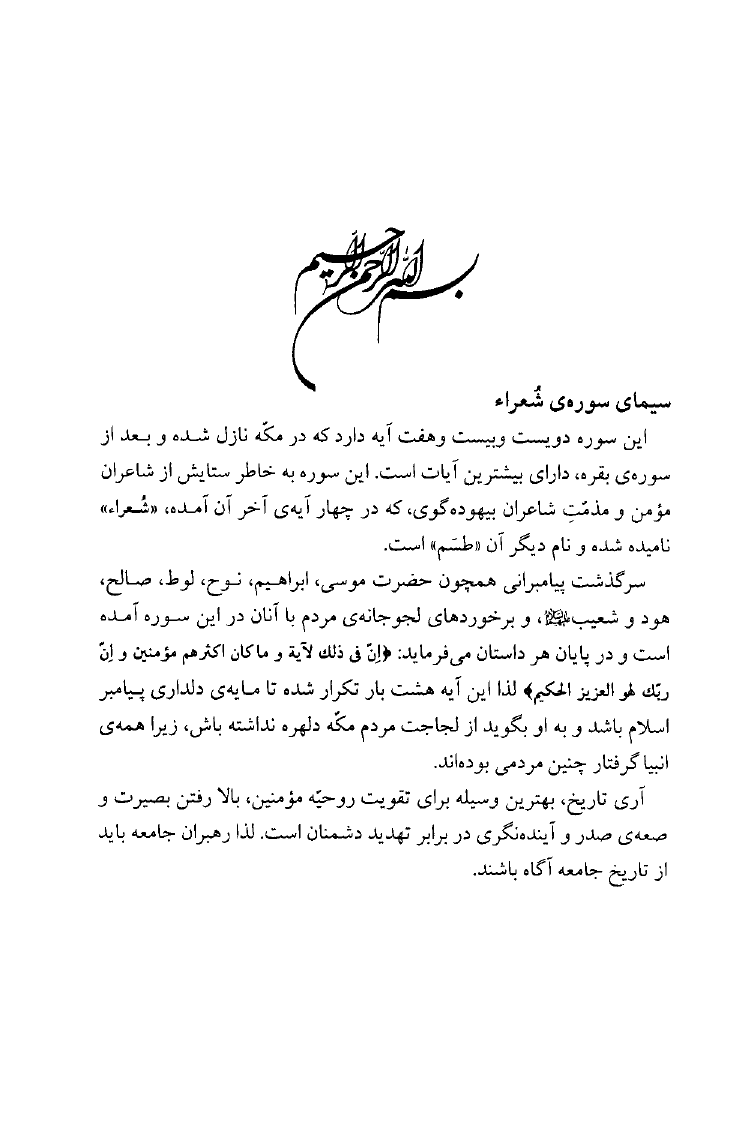 بسم الله الرحمن الرحیم
سیمای سوره‌ی شُعراء
این سوره دویست وبیست وهفت آیه دارد که در مکّه نازل شده و بعد از
سوره‌ی بقره، دارای بیشترین آیات است. این سوره به خاطر ستایش از شاعران
مؤمن و مذمّتِ شاعران بیهوده‌گوی، که در چهار آیه‌ی آخر آن آمده، «شُعراء»
نامیده شده و نام دیگر آن «طسَم» است.
سرگذشت پیامبرانی همچون حضرت موسی، ابراهیم، نوح، لوط، صالح،
هود و شعیب، و برخوردهای لجوجانه‌ی مردم با آنان در این سوره آمده
است و در پایان هر داستان می‌فرماید: ﴿اِنّ فی ذلك لآیة و ماكان اكثرهم مؤمنین و اِنّ
ربّك لهو العزیز الحكیم﴾ لذا این آیه هشت بار تکرار شده تا مایه‌ی دلداری پیامبر
اسلام باشد و به او بگوید از لجاجت مردم مکّه دلهره نداشته باش، زیرا همه‌ی
انبیا گرفتار چنین مردمی بوده‌اند.
آری تاریخ، بهترین وسیله برای تقویت روحیّه مؤمنین، بالا رفتن بصیرت و
صعه‌ی صدر و آینده‌نگری در برابر تهدید دشمنان است. لذا رهبران جامعه باید
از تاریخ جامعه آگاه باشند.